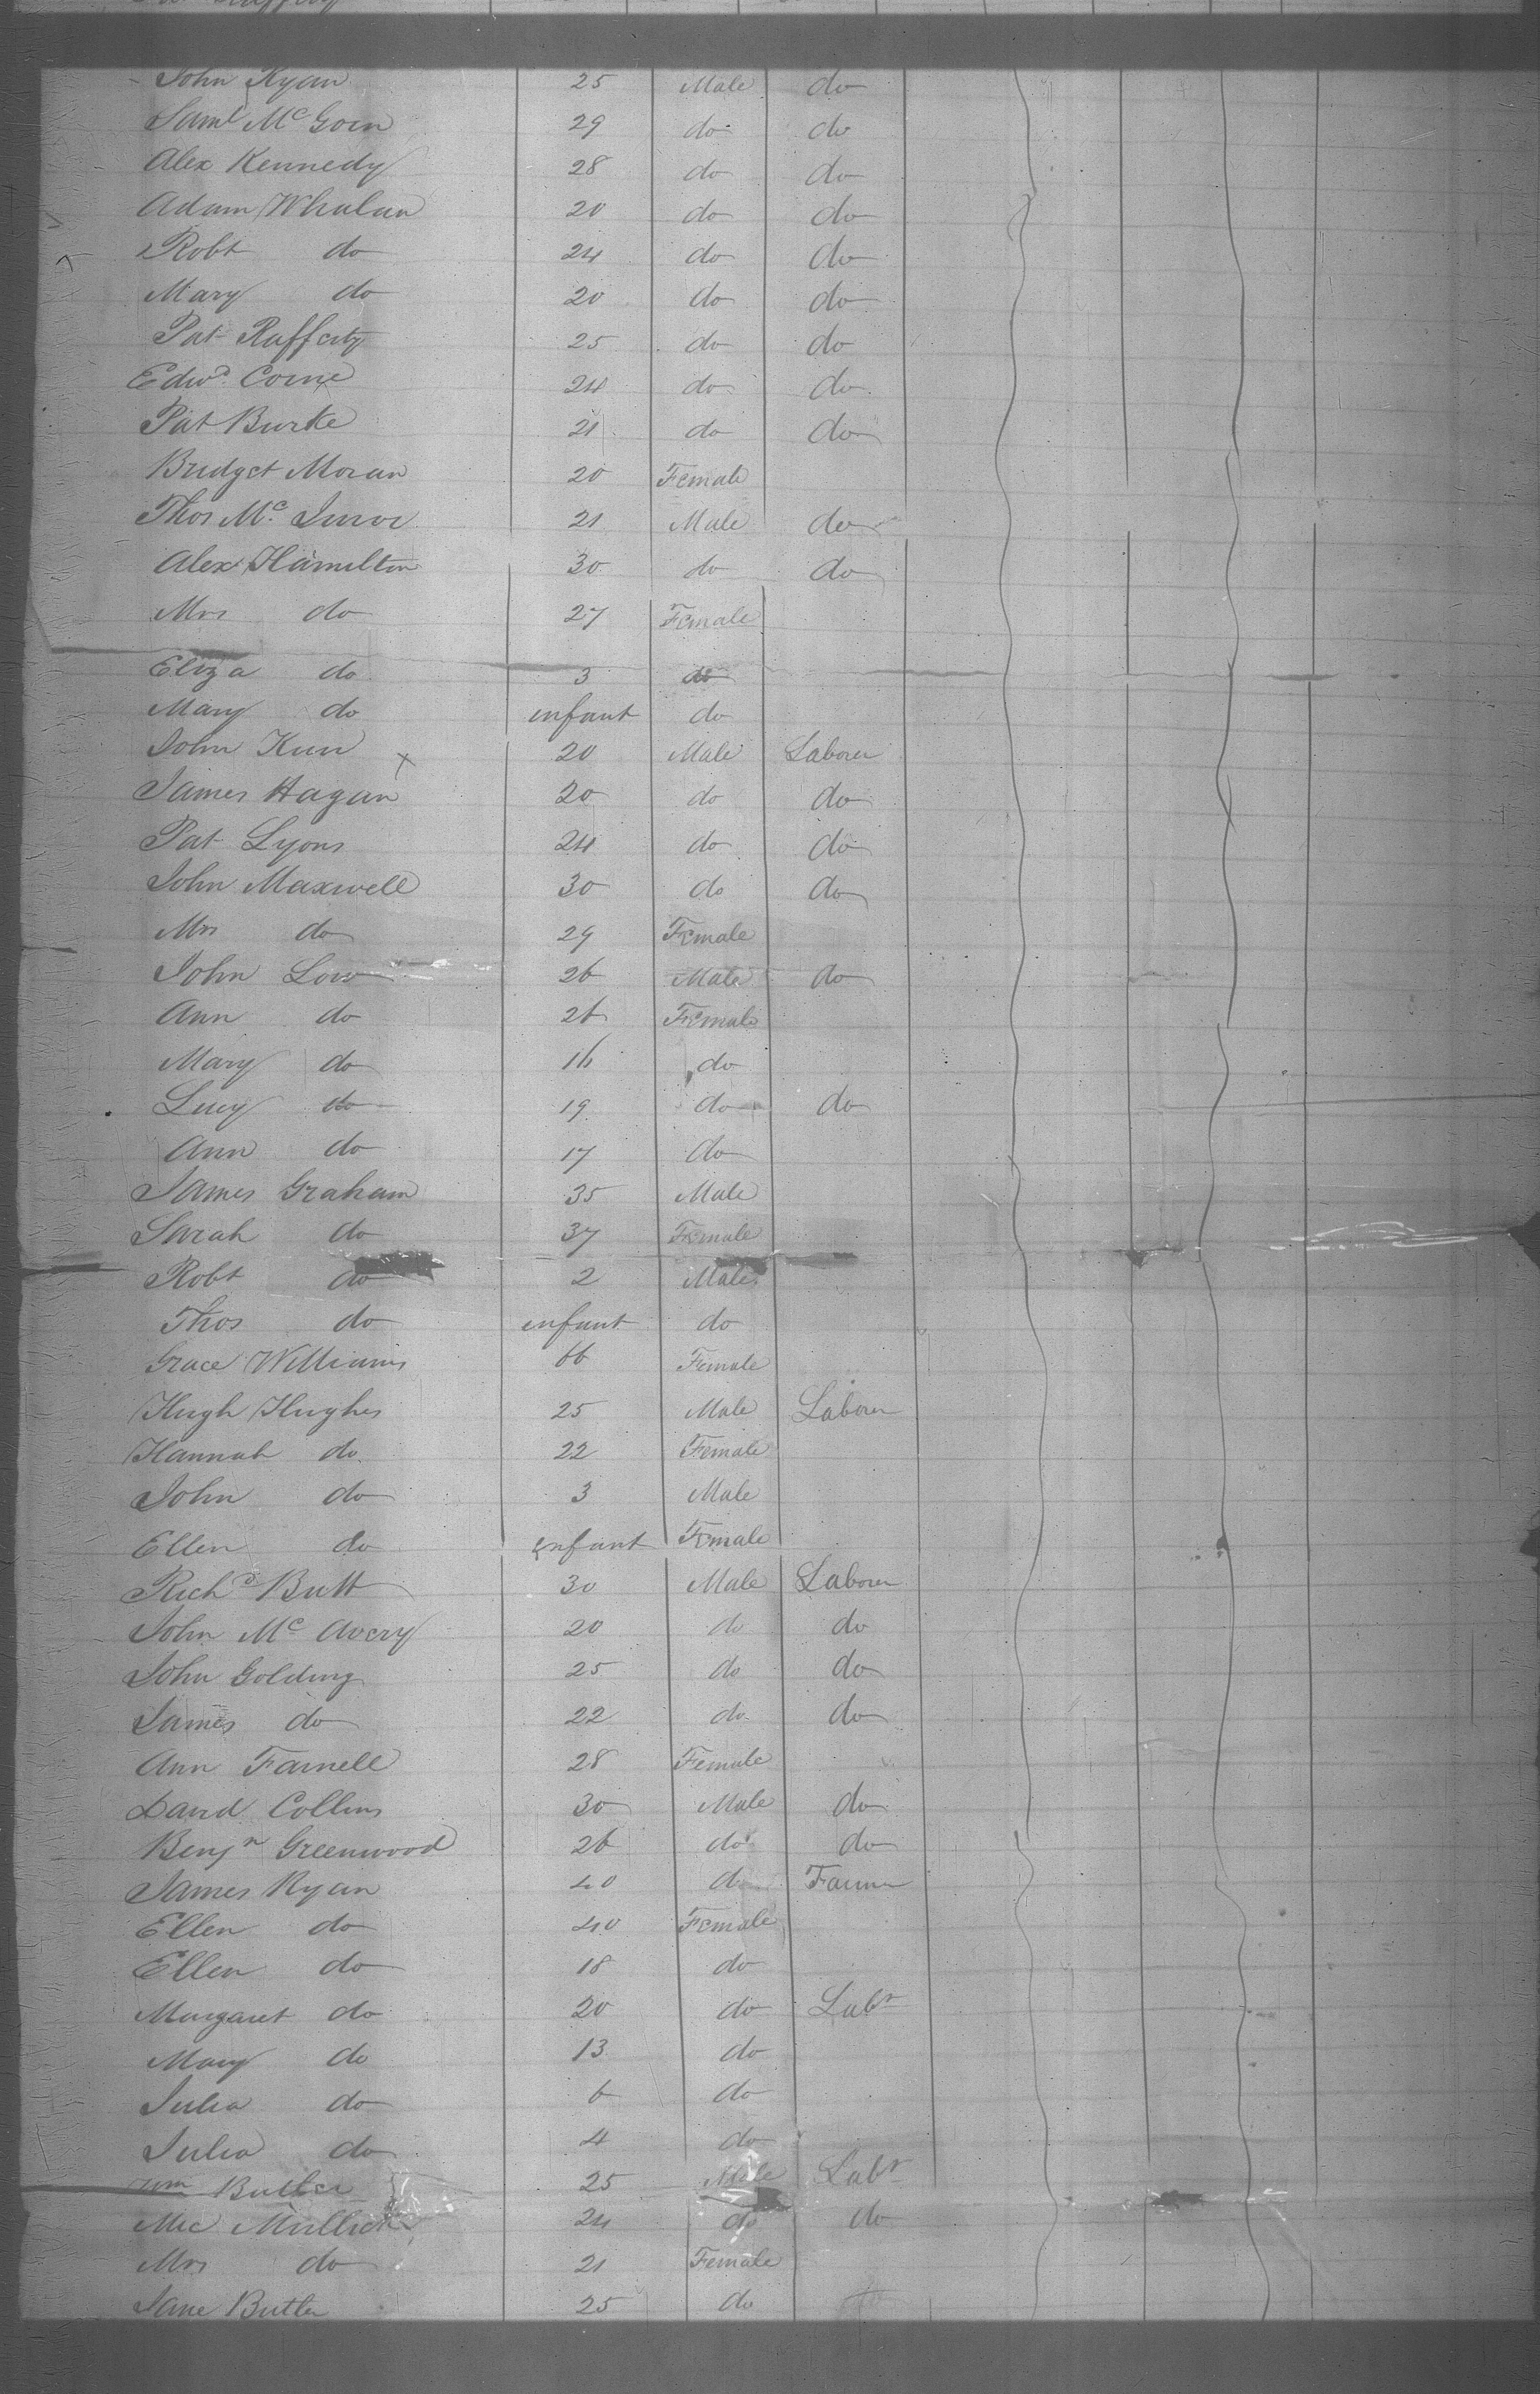 John Ryan 25 Male do
Saml Mc Goen 29 do do
Alex Kennedy 28 do do
Adam Whalan 20 do do
Robt do 24 do do
Mary do 20 do do
Pat Rafferty 25 do do
Edwd Corne 24 do do
Pat Burke 21 do do
Bridget Moran 20 Female
Thos Mc 21 Male do
Alex Hamilton 30 do do
Mrs do 27 Female
Eliza do 3 do
Mary do infant do
John 20 Male Laborer
James Hagan 20 do do
Pat Lyons 24 do do
John Maxwell 30 do do
Mrs do 29 Female
John Low 26 Male do
Ann do 26 Female
Mary do 16 do
Lucy do 19 do do
Ann do 17 do
James Graham 35 Male
Sarah do 37 Female
Robt do 2 Male
Thos do infant do
Grace Williams 66 Female
Hugh Hughes 25 Male Laborer
Hannah do 22 Female
John do 3 Male
Ellen do infant Female
Richd Butt 30 Male Laborer
John Mc Avery 20 do do
John Golding 25 do do
James do 22 do do
Ann Farnell 28 Female
David Collins 30 Male do
Benjn Greenwood 26 do do
James Ryan 40 do Farmer
Ellen do 40 Female
Ellen do 18 do
Margaret do 20 do Labr
Mary do 13 do
Julia do 6 do
Julia do 4 do
Wm Butler 25 Male Labr
Mic 24 do do
Mrs do 21 Female
Jane Butler 25 do